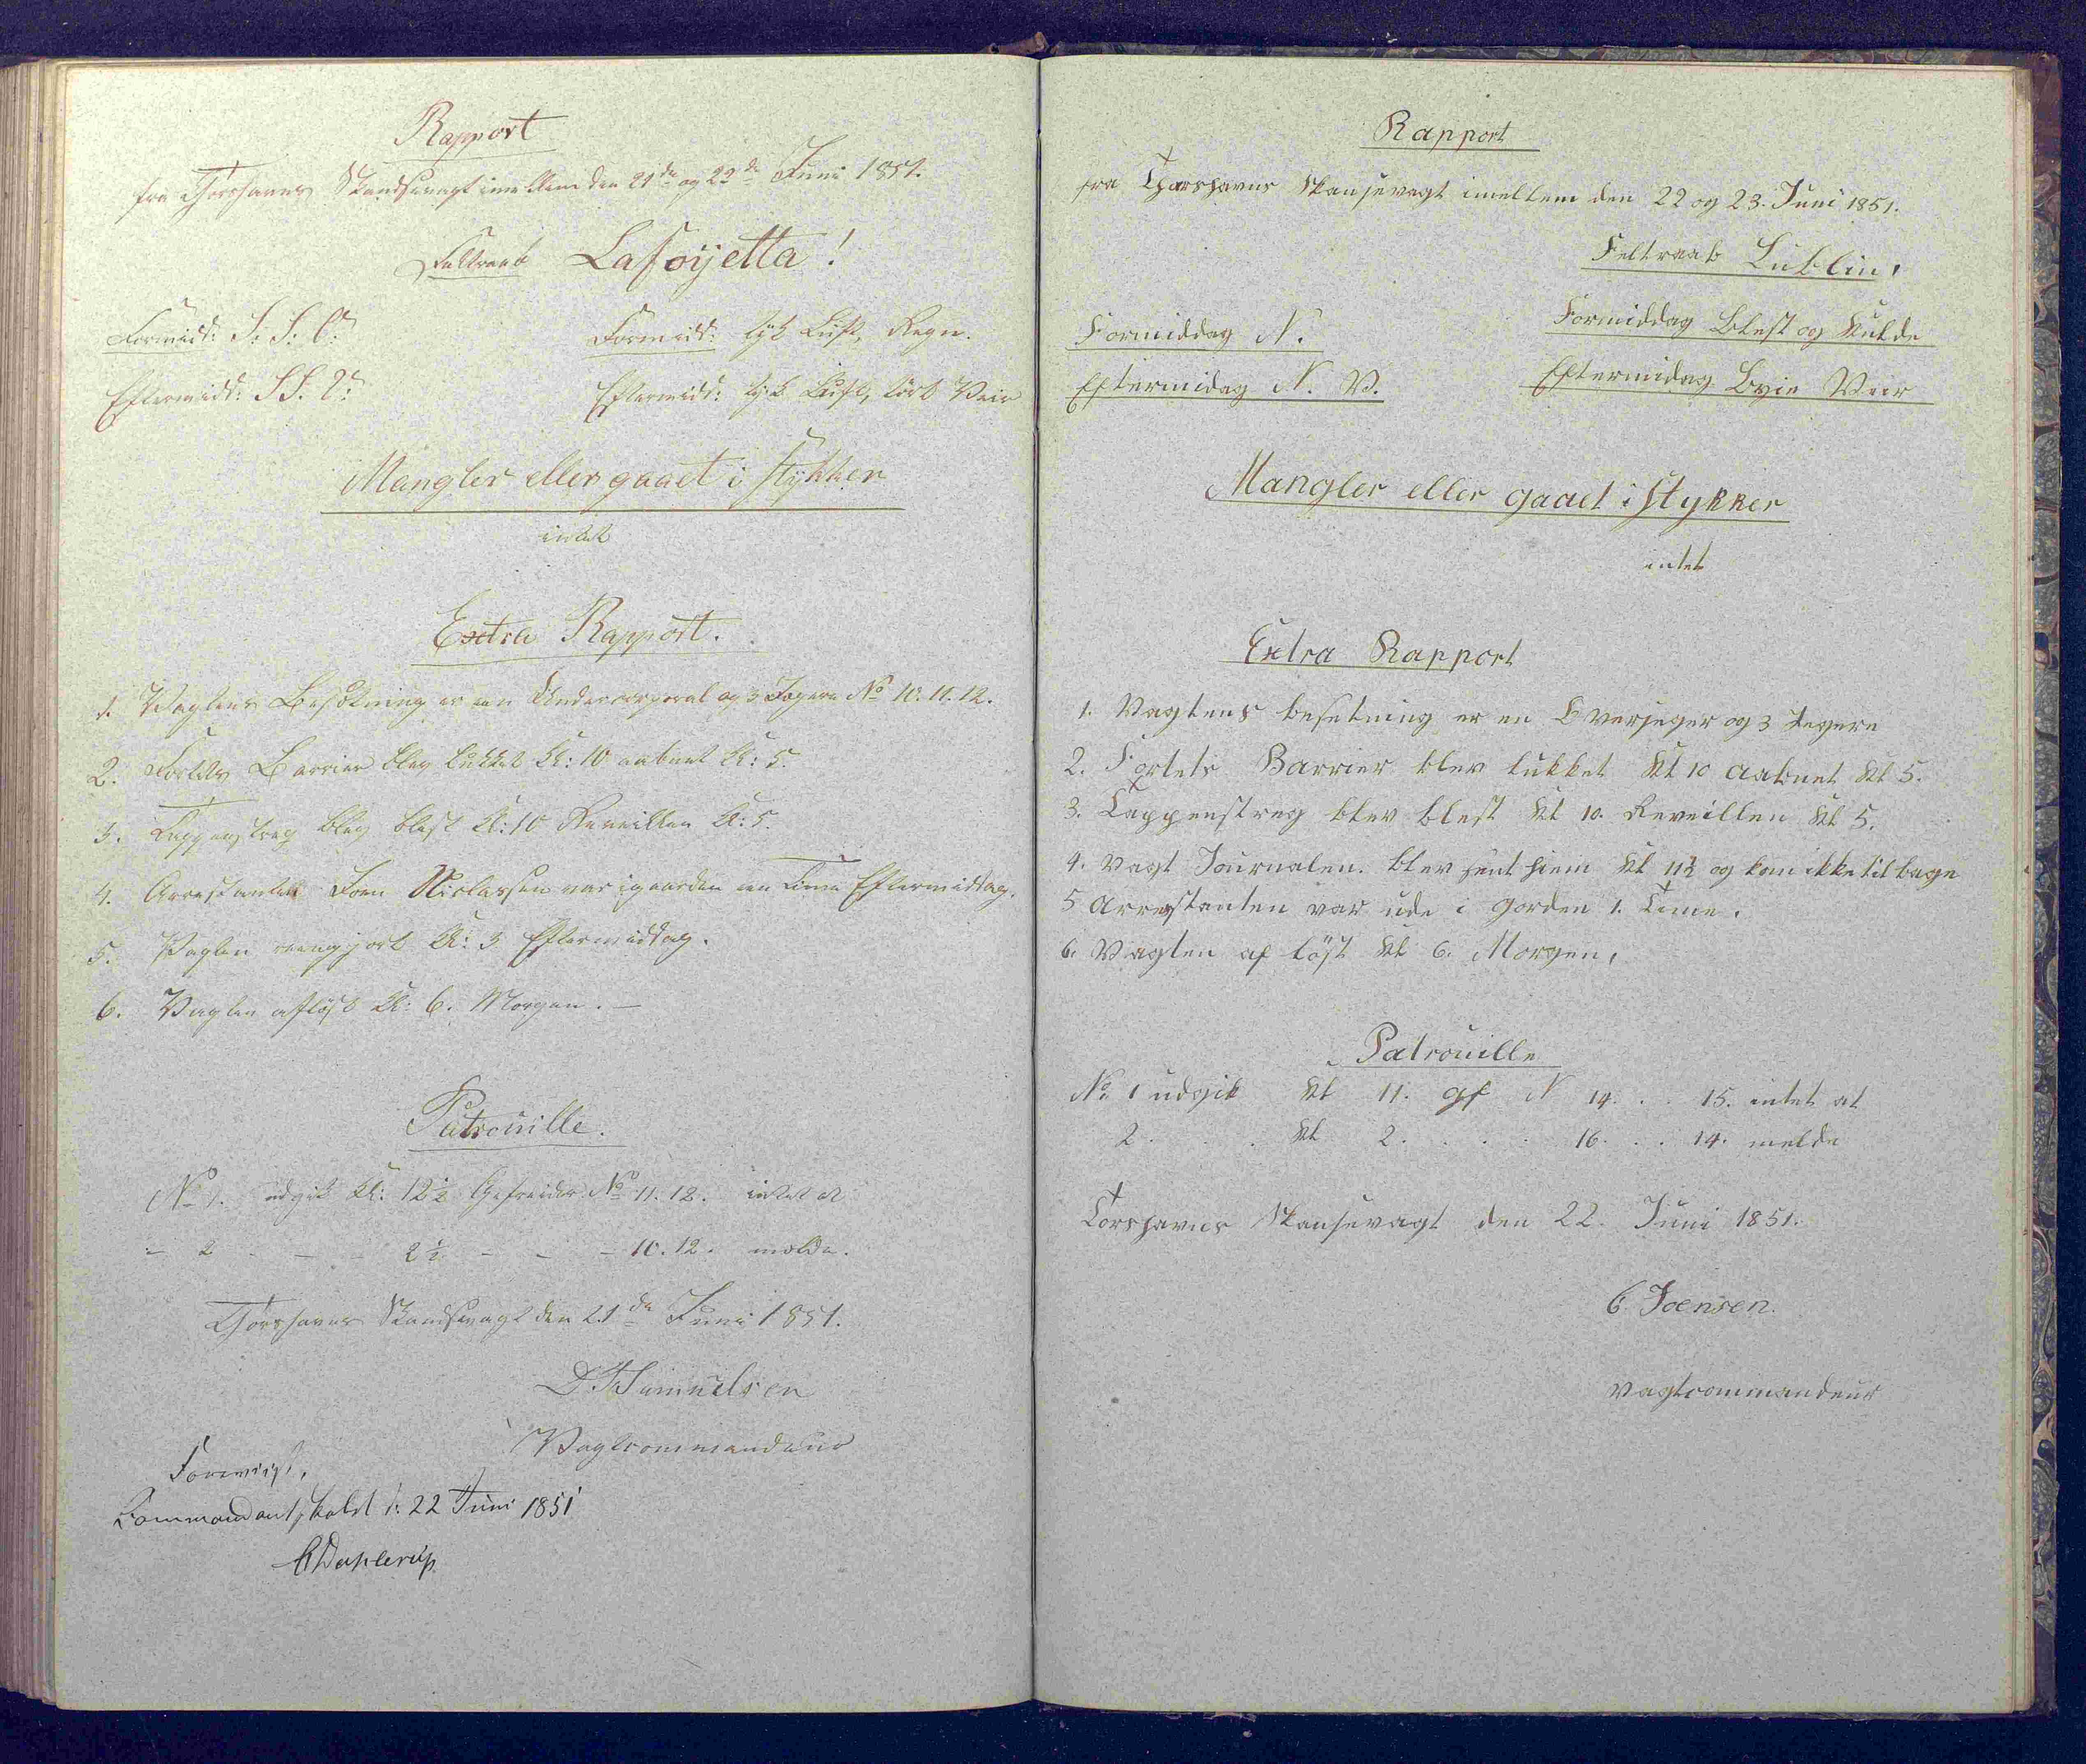 Rapport
fra Thorshavns Skandsevagt imellem den 21de og 22de Juni 1851.
Feltraab Lafoÿetta!
Formidd: S: S: O:
Formidd: tyk Luft, Regn.
Eftermidd: SS. O:
Eftermidd: tyk Luft, tört Veir
Mangler eller gaaet i stykker
intet
Extra Rapport.
1. Vagtens Besætning er en Undercorporal og 3 Jægere No 10. 11. 12.
2. Fortets Barrier blev lukket Kl: 10 aabnet Kl: 5.
3. Tappenstreg blev blæst Kl: 10 Reveillen Kl: 5.
4. Arrestanten Joen Niclassen var i gaarden en Time Eftermiddag.
5. Vagten reengjort Kl: 3 Eftermiddag.
6. Vagten afløst Kl: 6. Morgen. —
Patrouille.
No 1. udgik Kl: 12½ Gefreider No 11. 12. intet at
- 2 - - - 2½ - - - 10. 12. melde.
Thorshavns Skandsevagt den 21de Juni 1851.
D. Samuelsen
Vagtcommandeur
Foreviist,
Commandantskabet d: 22 Juni 1851
CDahlerup
Rapport
fra Thorshavns Skansevagt imellem den 22 og 23. Juni 1851.
Feltraab Lublin,
Formiddag N.
Formiddag Blest og Kulde
Eftermidag N. V.
Eftermidag Veir
Mangler eller gaaet i stykker
intet
Extra Rapport
1. Vagtens besetning er en Overjeger og 3 Jegere
2. Fortets Barrier blev lukket Kl 10 aabnet Kl 5.
3. Tappenstreg blev blest Kl 10. Reveillen Kl 5.
4. Vagt Journalen. blev sent hiem Kl 11½ og kom ikke tilbage
5 Arrestanten var ude i gorden 1. Time.
6. Vagten af löst Kl 6. Morgen,
Patrouille
No 1 udgik Kl 11. gf N 14. . . 15. intet at
2. . . Kl 2. . . . 16. . . 14. melde
Torshavns Skansevagt den 22. Juni 1851.
Joensen.
Vagtcommandeur